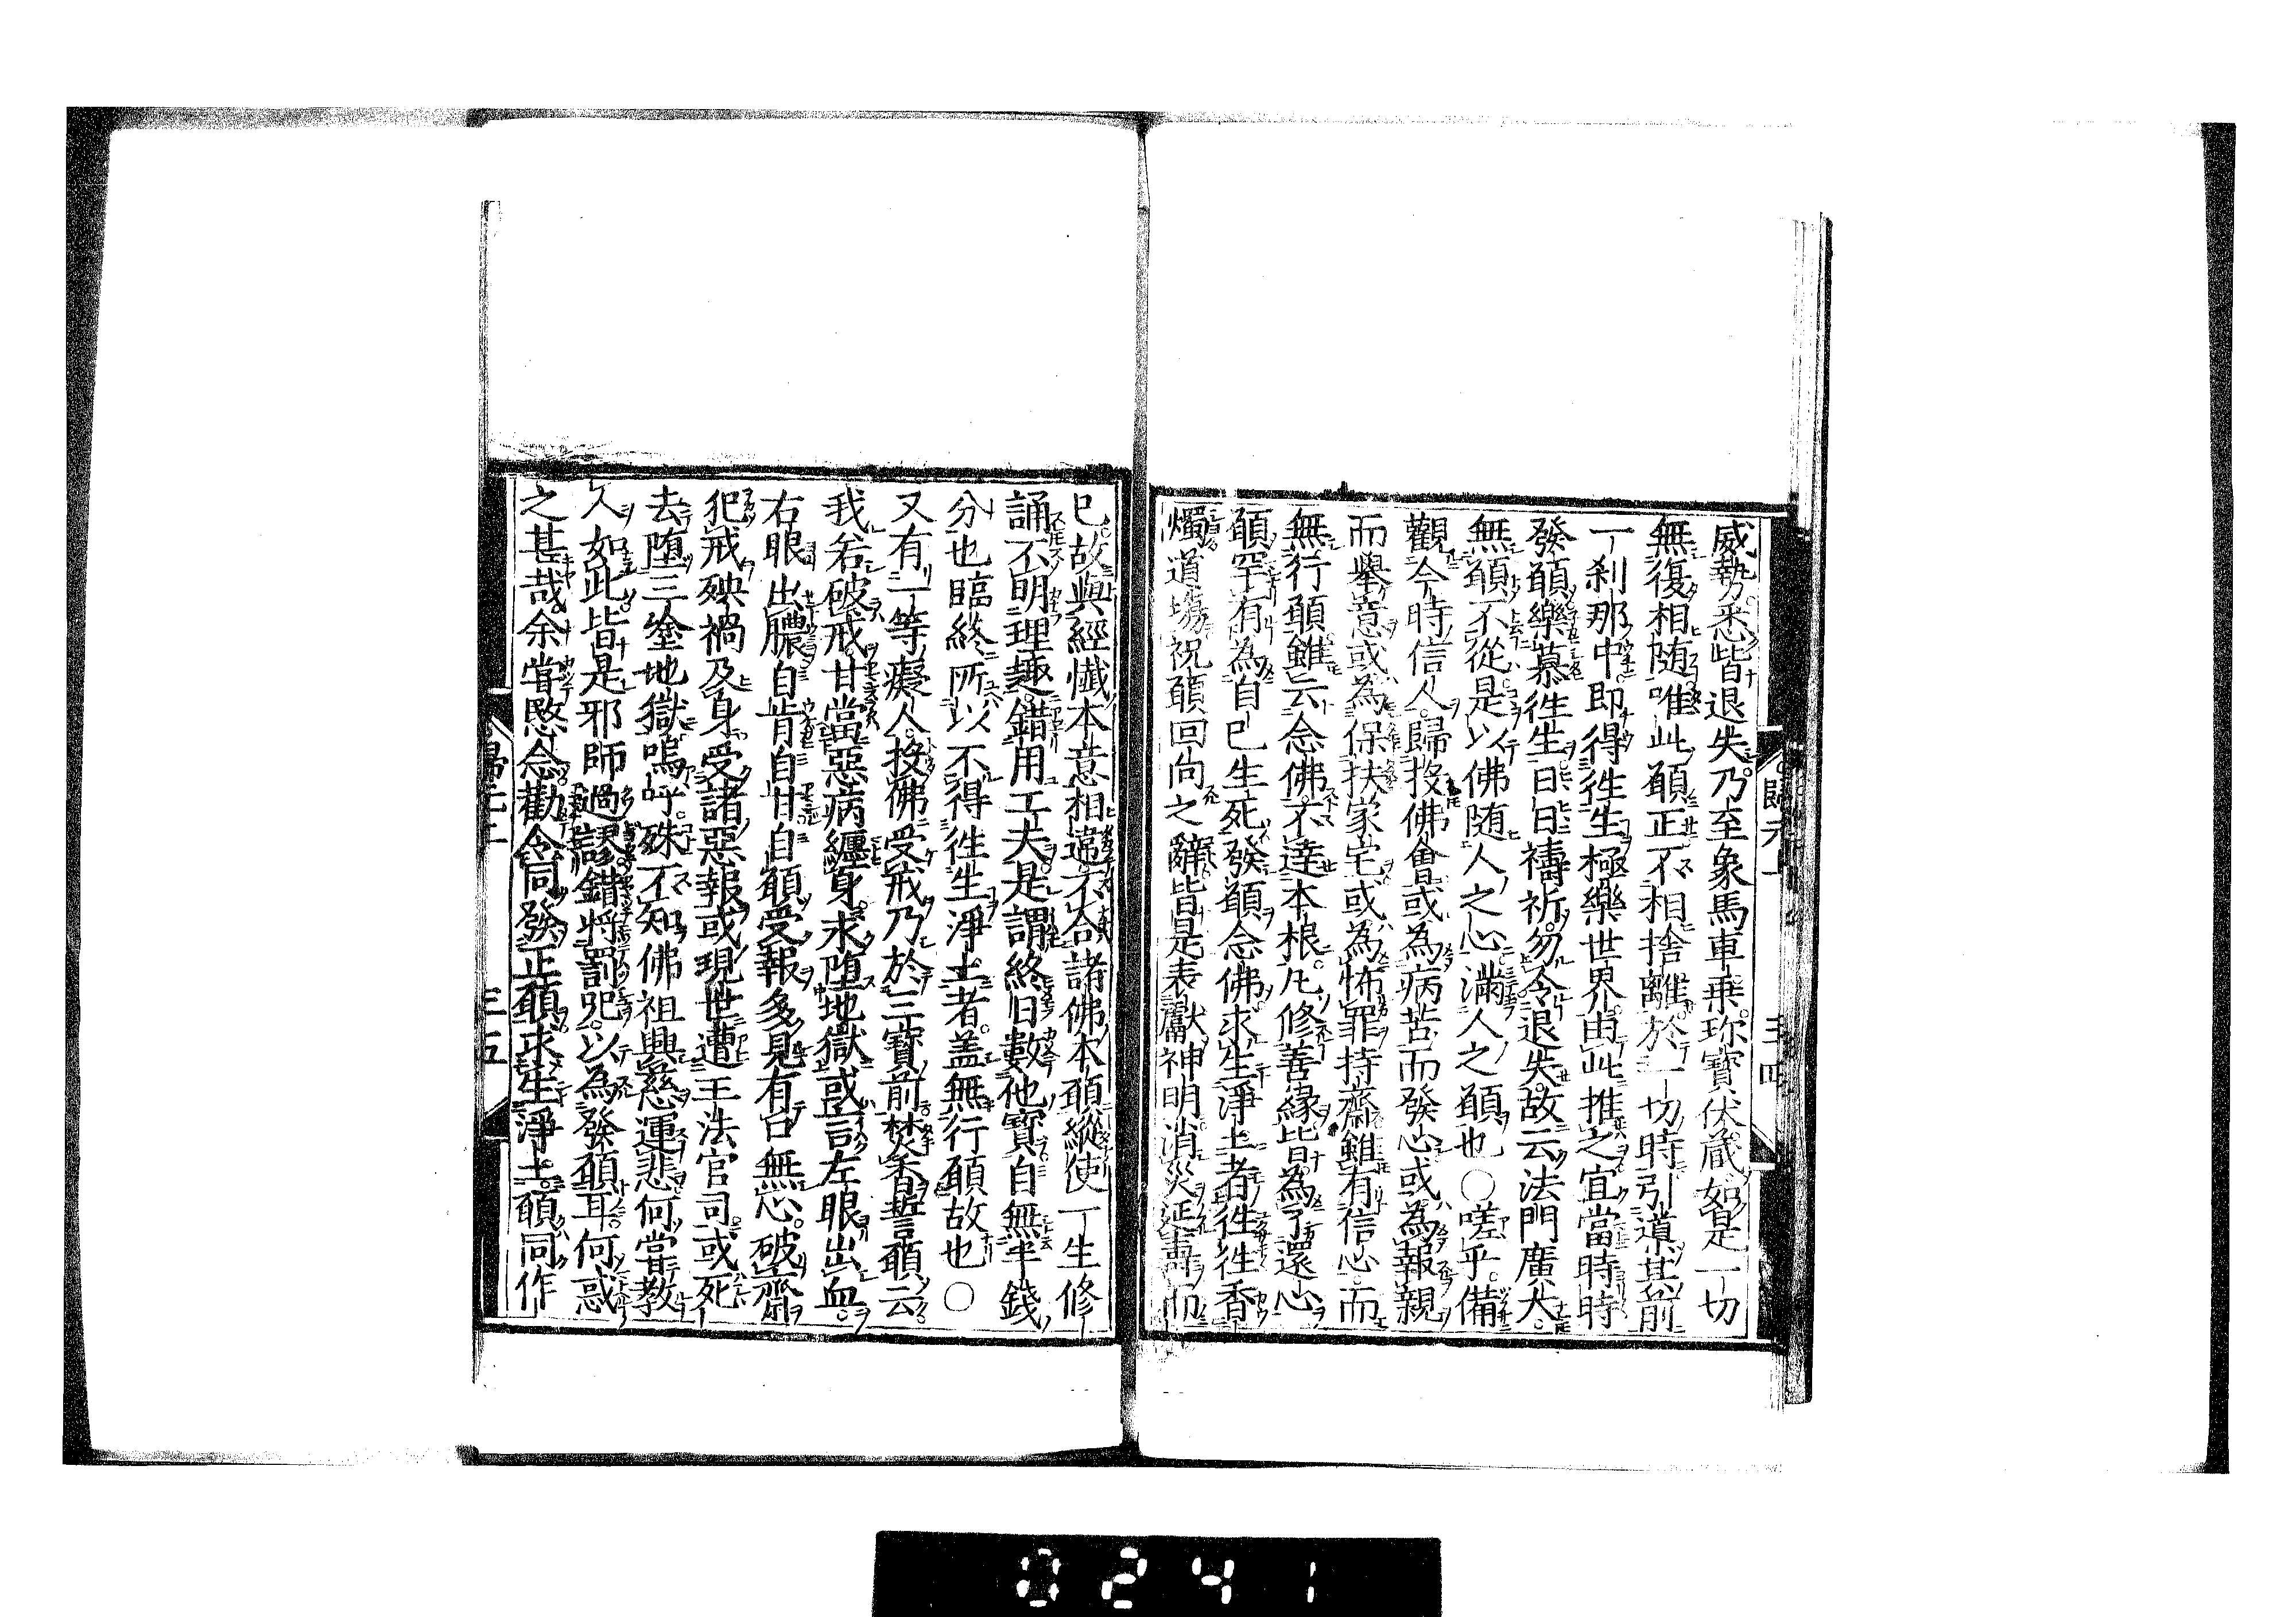 威勢悉皆退失乃至象馬車乗珎寳伏蔵如是一切
無復相随唯此願正不相捨離於一切時引導其前
一刹那中即得徃生極樂世界由此推之宜當時時
發願樂慕徃生日日禱祈勿令退失故云法門廣大
無願不從是以佛随人之心滿人之願也〇嗟乎備
觀今時信人歸投佛會或為病苦而發心或為報親
而擧意或為保扶家宅或為怖罪持齋雖有信心而
無行願雖云念佛不達本根凢修善縁皆為了還心
願罕有為自已生死發願念佛求生淨土者徃徃香
燭道塲祝願回向之辭皆是表獻神明消災延壽而
已故與經懺本意相違不合諸佛本願縱使一生修
誦不明理趣錯用工夫是謂終日數他寳自無半錢
分也臨終所以不得徃生淨土者盖無行願故也〇
又有一等癡人投佛受戒乃於三寳前焚香誓願云
我若破戒甘當惡病纒身求堕地獄或言左眼出血
右眼出膿自肯自甘自願受報多見有口無心破齋
犯戒殃禍及身受諸惡報或現世遭王法官司或死
去堕三塗地獄嗚呼殊不知佛祖興慈運悲何當教
人如此皆是邪師過謬錯將罰咒以為發願耳何惑
之甚哉余當愍念勸令同發正願求生淨土願同作
歸元
三五
0241